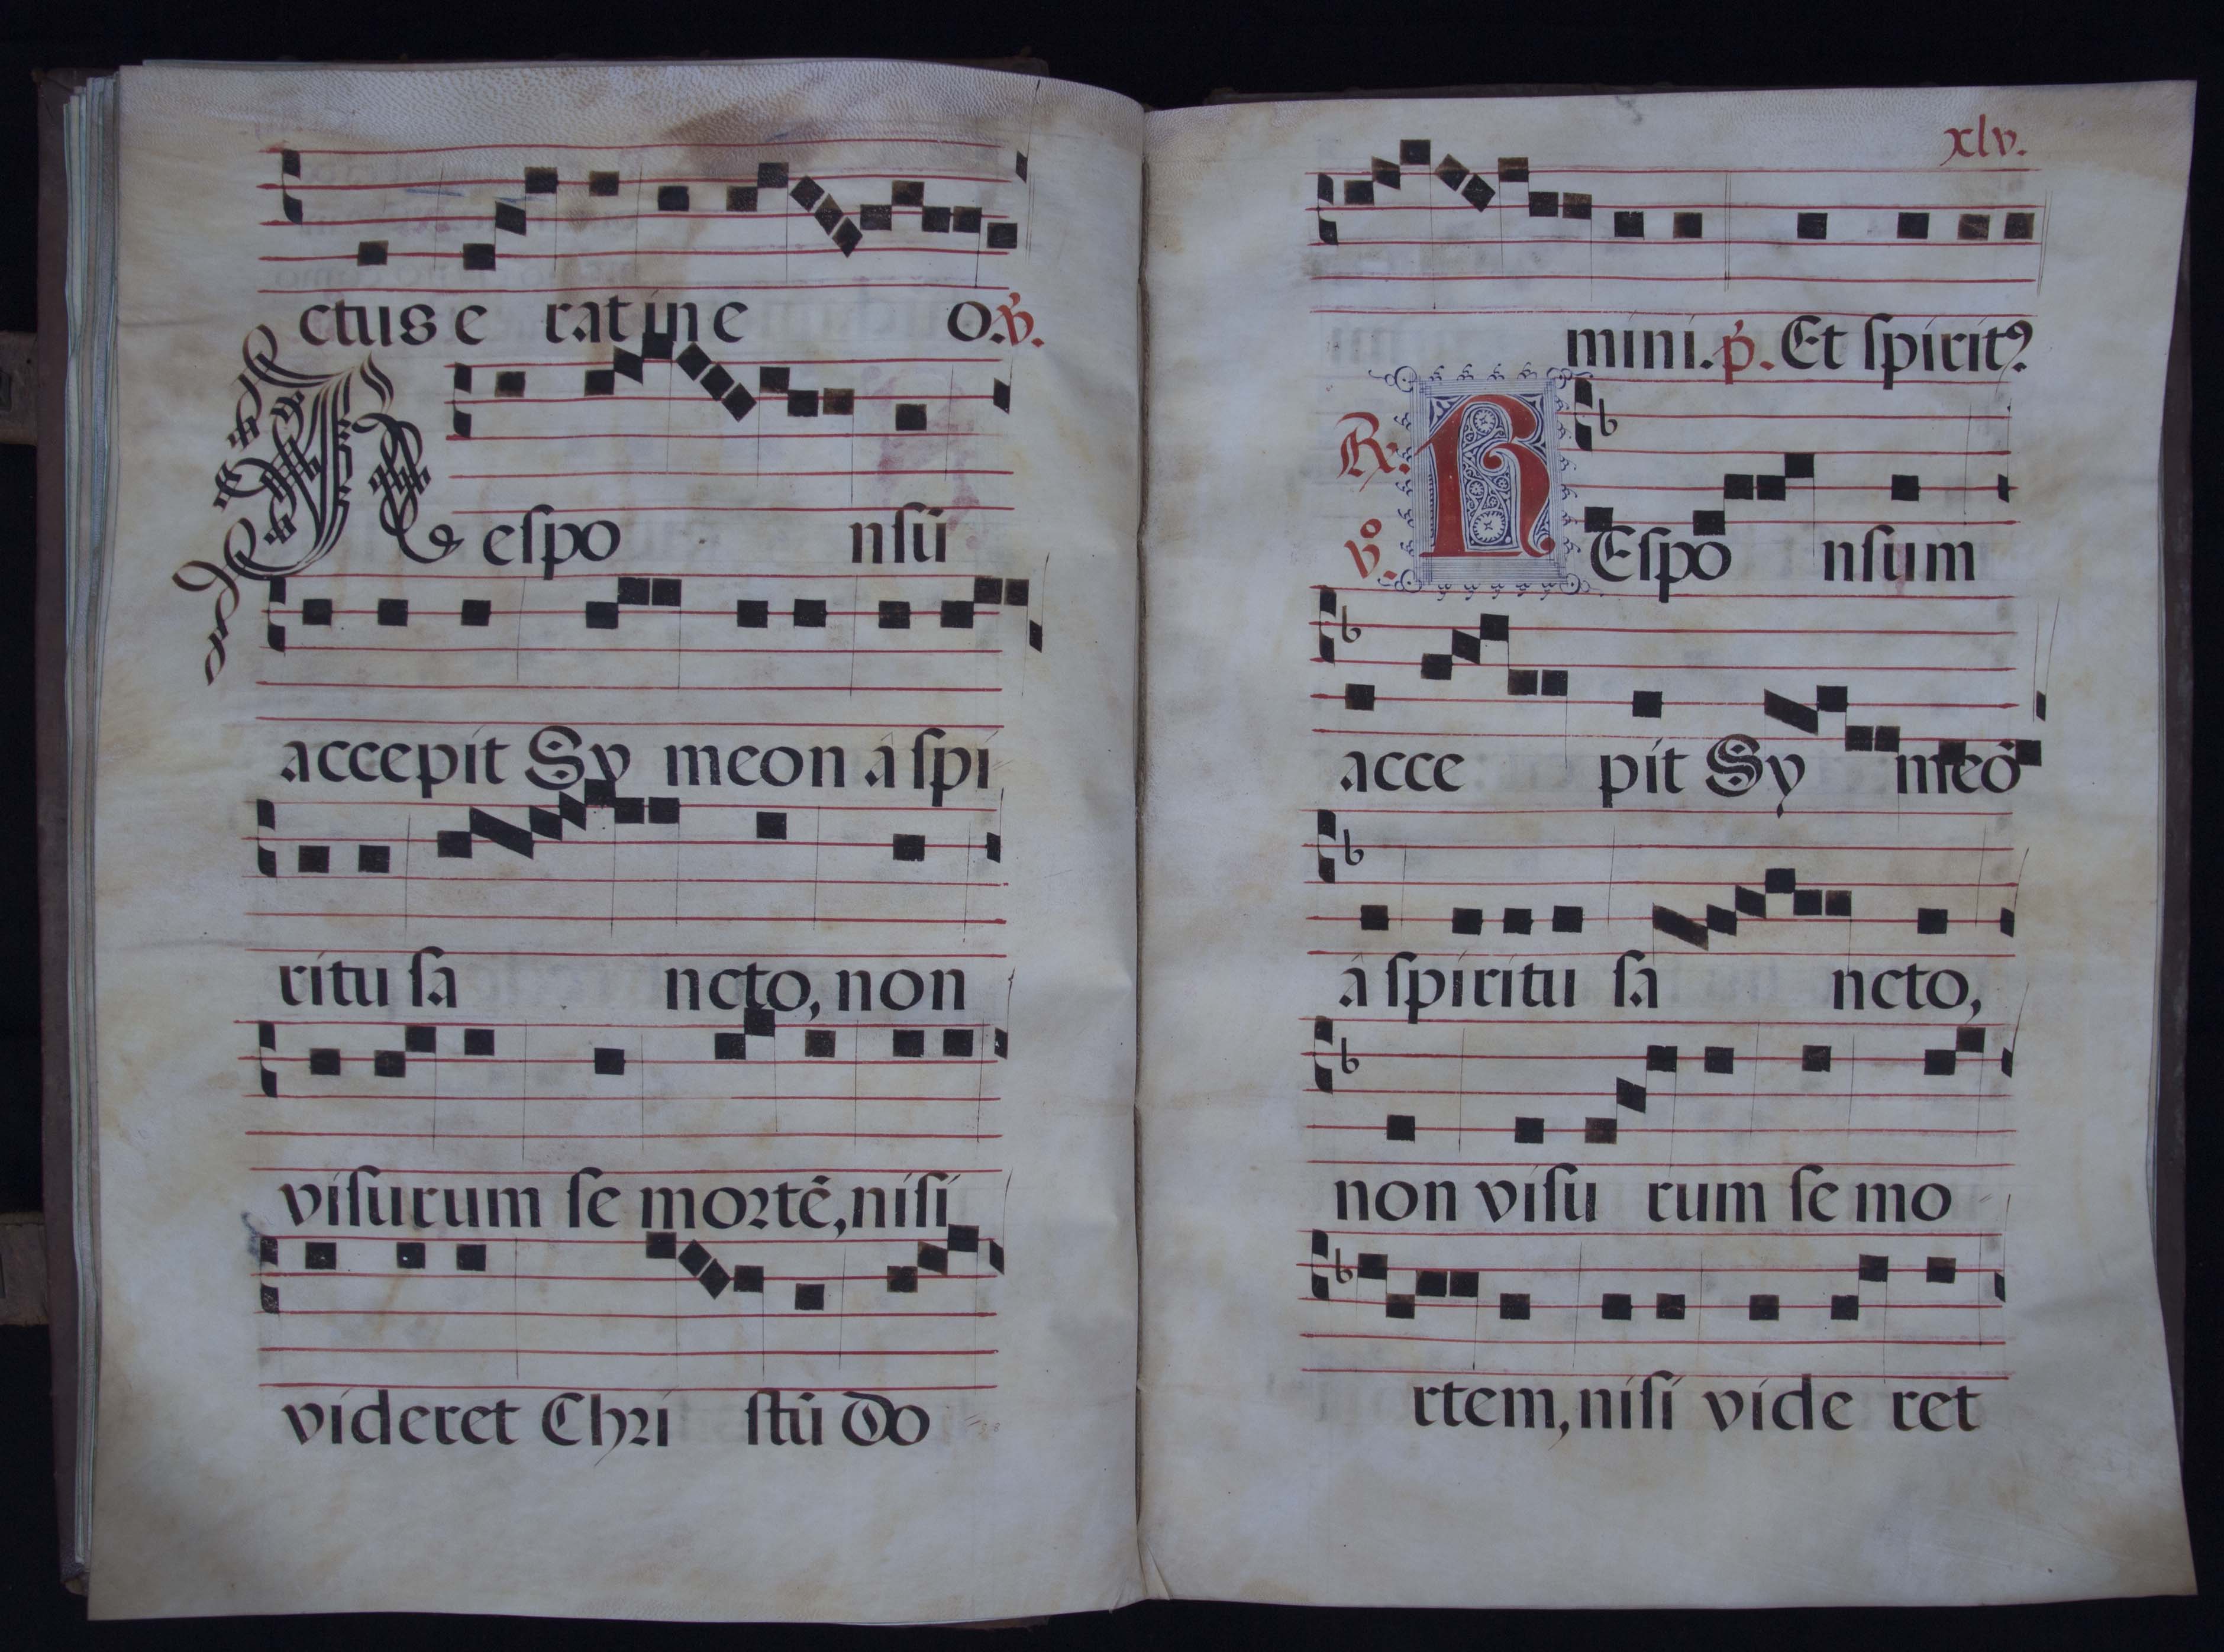 ctus e rat in e o. ℣.
Responsū
accepit Sy meon á spi
ritu sa ncto, non
visurum se mortē, nisi
videret Chri stū Do
xlv.
mini. p̃. Et spiritꝰ
℟. vº. REspo nsum
acce pit Sy meō
á spiritu sa ncto,
non visu rum se mo
rtem, nisi vide ret